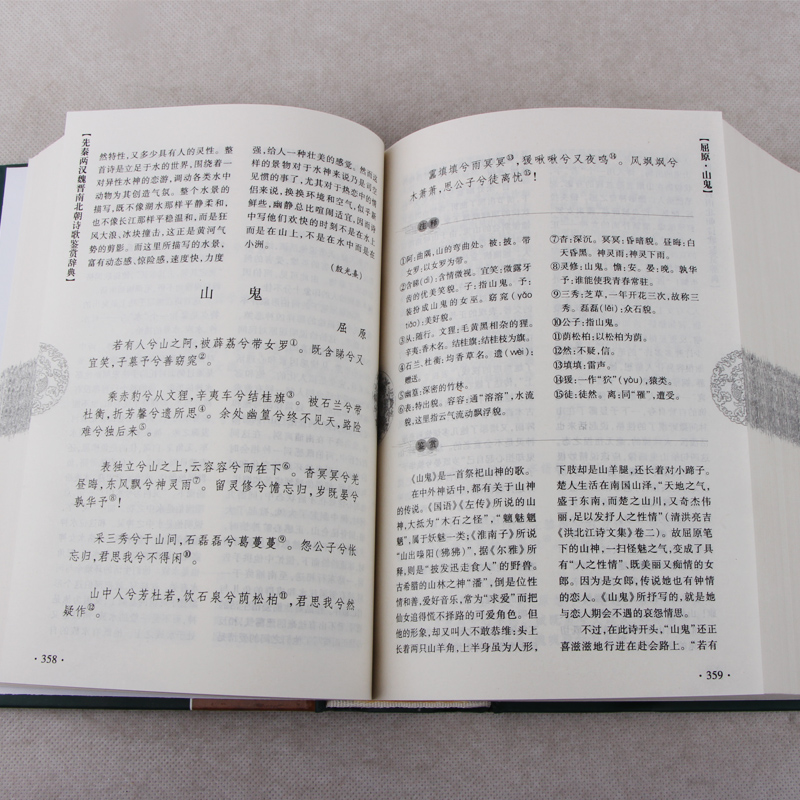 【先秦两汉魏晋南北朝诗歌鉴赏辞典】
然特性，又多少具有人的灵性。整
首诗是立足于水的世界，围绕着一
对异性水神的恋游，调动各类水中
动物为其创造气氛。整个水景的
描写，既不像湖水那样平静柔和，
也不像长江那样平稳温和，而是狂
风大浪、冰块撞击，这正是黄河气
势的剪影。而这里所描写的水景，
富有动态感、惊险感，速度快，力度
强，给人一种壮美的感觉。然而这
样的景物对于水神来说乃是司空
见惯的事了，尤其对于热恋中的情
侣来说，换换环境和空气，似乎新
鲜些，幽静总比喧闹适宜，因而诗
中写他们欢快的时刻不是在水上
而是在山上，不是在水中而是在
小洲。
（殷光熹）
山 鬼
屈 原
若有人兮山之阿，被薜荔兮带女罗①。既含睇兮又
宜笑，子慕予兮善窈窕②。
乘赤豹兮从文狸，辛夷车兮结桂旗③。被石兰兮带
杜衡，折芳馨兮遗所思④。余处幽篁兮终不见天，路险
难兮独后来⑤。
表独立兮山之上，云容容兮而在下⑥。杳冥冥兮羌
昼晦，东风飘兮神灵雨⑦。留灵修兮憺忘归，岁既晏兮
孰华予⑧！
采三秀兮于山间，石磊磊兮葛蔓蔓⑨。怨公子兮怅
忘归，君思我兮不得闲⑩。
山中人兮芳杜若，饮石泉兮荫松柏⑪，君思我兮然
疑作⑫。
·358·
【屈原·山鬼】
靁填填兮雨冥冥⑬，猨啾啾兮又夜鸣⑭。风飒飒兮
木萧萧，思公子兮徒离忧⑮！
注释
①阿：曲隅，山的弯曲处。被：披。带
女罗：以女罗为带。
②含睇(dì)：含情微视。宜笑：微露牙
齿的优美笑貌。子：指山鬼。予：
装扮成山鬼的女巫。窈窕(yǎo
tiǎo)：美好貌。
③从：随行。文狸：毛黄黑相杂的狸。
辛夷：香木名。结桂旗：结桂枝为旗。
④石兰、杜衡：均香草名。遗(wèi)：
赠送。
⑤幽篁：深密的竹林。
⑥表：特出貌。容容：通“溶溶”，水流
貌。这里指云气流动飘浮貌。
⑦杳：深沉。冥冥：昏暗貌。昼晦：白
天昏黑。神灵雨：神灵下雨。
⑧灵修：山鬼。憺：安。晏：晚。孰华
予：谁能使我青春常驻。
⑨三秀：芝草，一年开花三次，故称三
秀。磊磊(lěi)：众石貌。
⑩公子：指山鬼。
⑪荫松柏：以松柏为荫。
⑫然：不疑，信。
⑬填填：雷声。
⑭猨：一作“狖”(yòu)，猿类。
⑮徒：徒然。离：同“罹”，遭受。
鉴赏
《山鬼》是一首祭祀山神的歌。
在中外神话中，都有关于山神
的传说。《国语》《左传》所说的山
神，大抵为“木石之怪”，“魑魅魍
魉”，属于妖魅一类；《淮南子》所说
“山出嘄阳(狒狒)”，据《尔雅》所
释，则是“披发迅走食人”的野兽。
古希腊的山林之神“潘”，倒是位性
情和善，爱好音乐，常为“求爱”而把
仙女追得慌不择路的可爱角色。但
他的形象，却又叫人不敢恭维：头上
长着两只山羊角，上半身虽为人形，
下肢却是山羊腿，还长着对小蹄子。
楚人生活在南国山泽，“天地之气，
盛于东南，而楚之山川，又奇杰伟
丽，足以发抒人之性情”(清洪亮吉
《洪北江诗文集》卷二)。故屈原笔
下的山神，一扫怪魅之气，变成了具
有“人之性情”、既美丽又痴情的女
郎。因为是女郎，传说她也有钟情
的恋人。《山鬼》所抒写的，就是她
与恋人期会不遇的哀怨情思。
不过，在此诗开头，“山鬼”还正
喜滋滋地行进在赴会路上。“若有
·359·